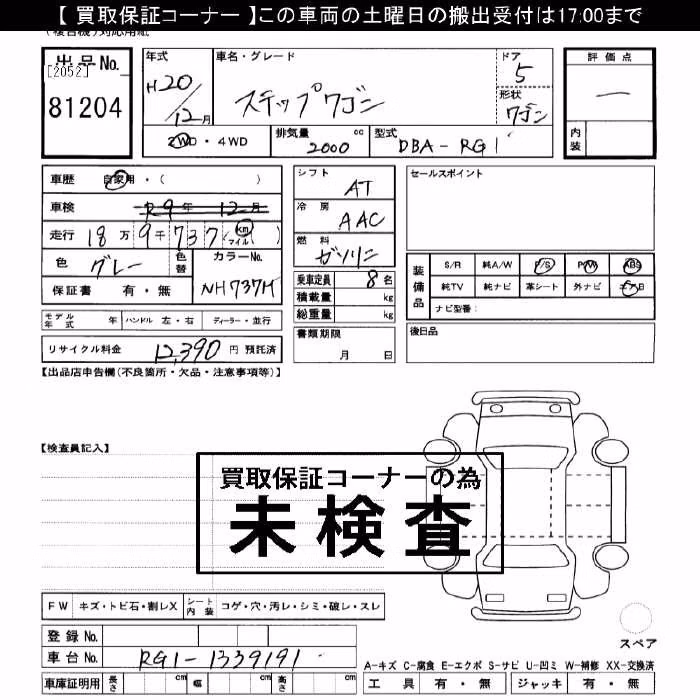 【 買取保証コーナー 】この車両の土曜日の搬出受付は17:00まで
(複合機)対応用紙
出品No.
[2052]
81204
年式
H20/12月
車名・グレード
ステップワゴン
ドア
5
形状
ワゴン
評価点
―
内装
2WD・4WD
排気量 2000 cc
型式 DBA-RG1
車歴 自家用・( )
車検 R9年 12月
走行 18万9千737 km マイル ( )
色 グレー
色替
カラーNo.
NH737M
保証書 有・無
シフト AT
冷房 AAC
燃料 ガソリン
乗車定員 8名
積載量 kg
総重量 kg
セールスポイント
装備品
S/R 純A/W P/S P/W ABS
純TV 純ナビ 革シート 外ナビ エアB
ナビ型番:
モデル年式 年 ハンドル 左・右 ディーラー・並行
リサイクル料金 12,390 円 預託済
書類期限
月 日
後日品
【出品店申告欄(不良箇所・欠品・注意事項等)】
【検査員記入】
買取保証コーナーの為
未検査
FW キズ・トビ石・割レX シート内装 コゲ・穴・汚レ・シミ・破レ・スレ
登録No.
車台No. RG1-1339191
車庫証明用 長さ cm 幅 cm 高さ cm
スペア
A-キズ C-腐食 E-エクボ S-サビ U-凹ミ W-補修 XX-交換済
工具 有・無 ジャッキ 有・無